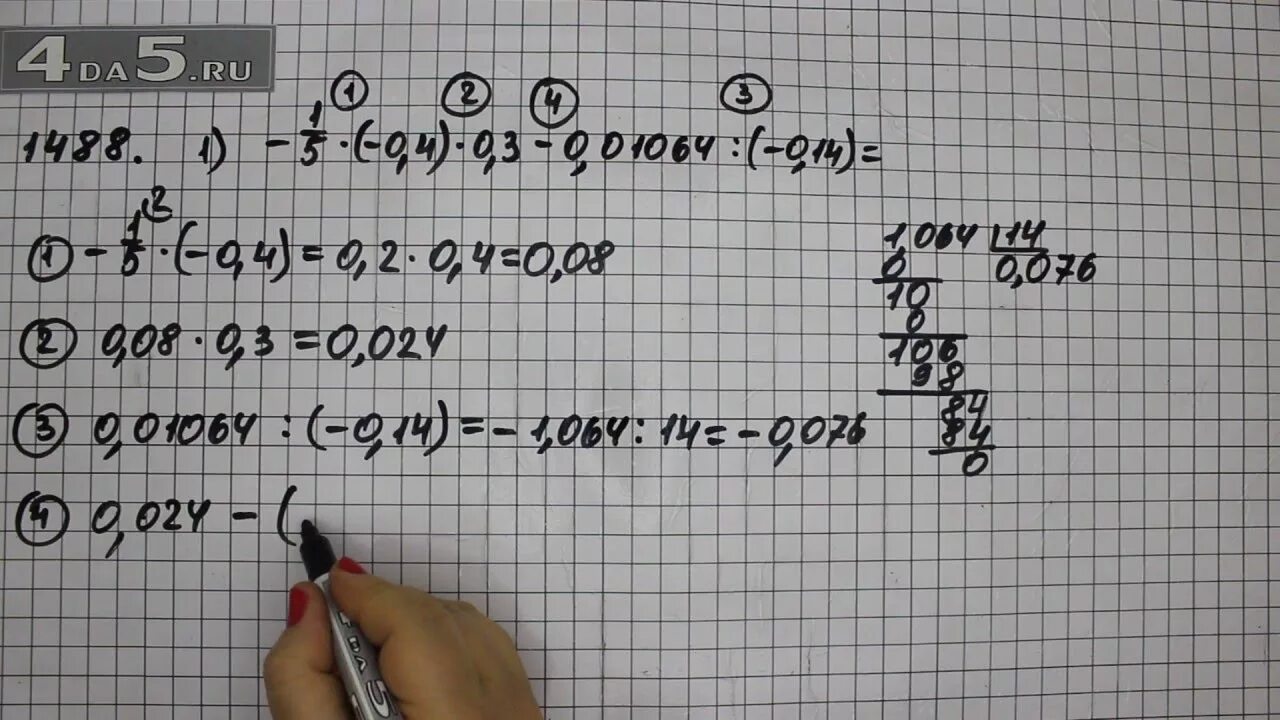 4DA5.RU
① ② ④ ③
1488. 1) -1/5·(-0,4)·0,3-0,01064:(-0,14)=
2
① -1/5·(-0,4)=0,2·0,4=0,08
② 0,08·0,3=0,024
③ 0,01064:(-0,14)=-1,064:14=-0,076
④ 0,024-(
1,064 14
0 0,076
10
0
106
98
84
84
0
4 DA 5